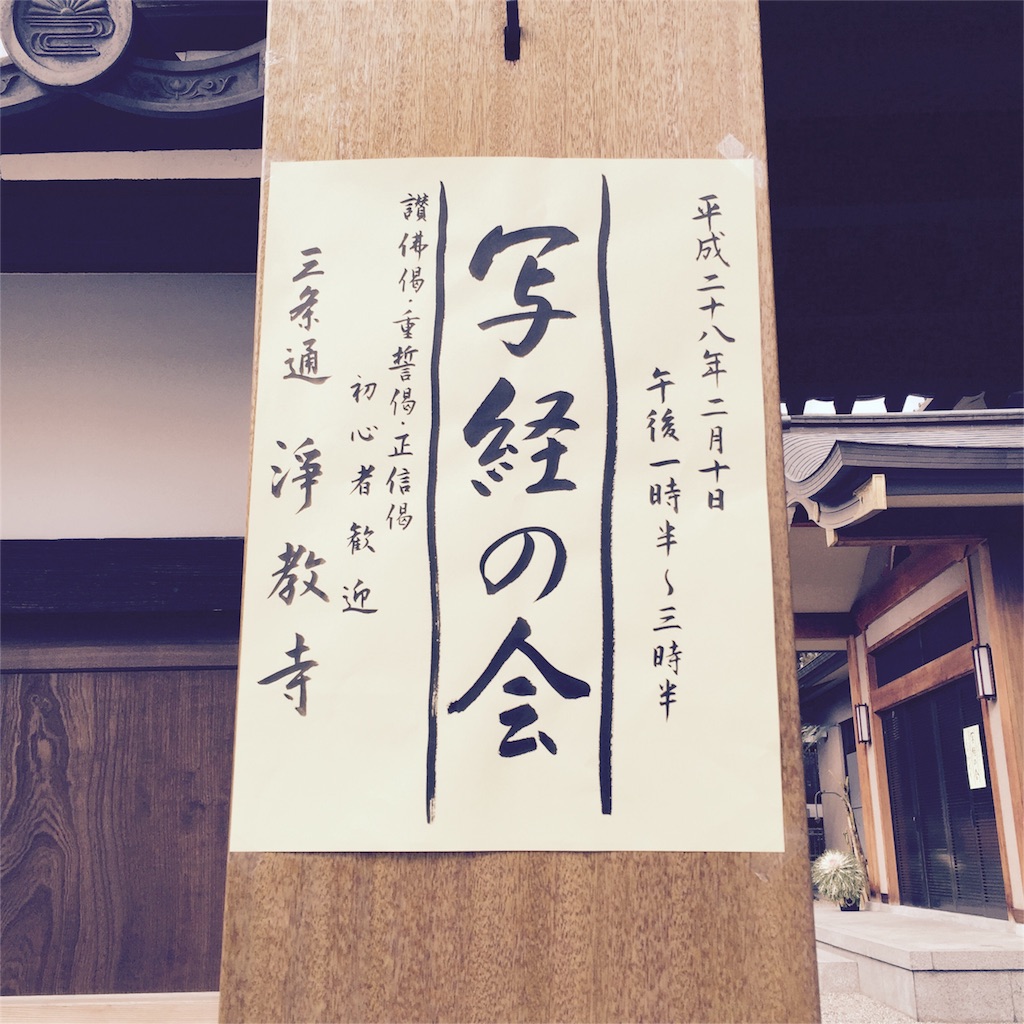 平成二十八年二月十日
午後一時半〜三時半
写経の会
讃佛偈・重誓偈・正信偈
初心者歓迎
三条通 淨教寺